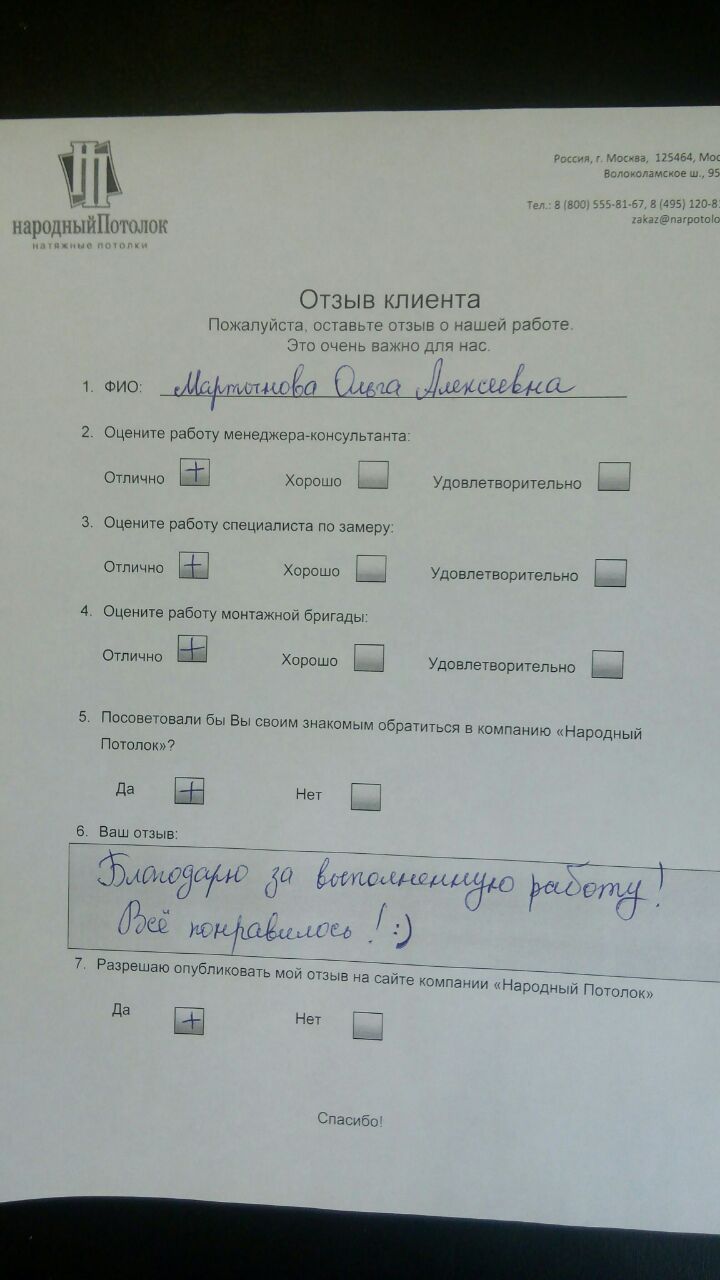 народныйПотолок
натяжные потолки
Россия, г. Москва, 125464, Мос
Волоколамское ш., 95
Тел.: 8 (800) 555-81-67, 8 (495) 120-81
zakaz@narpotolo
Отзыв клиента
Пожалуйста, оставьте отзыв о нашей работе.
Это очень важно для нас.
1. ФИО: Мартынова Ольга Алексеевна
2. Оцените работу менеджера-консультанта:
Отлично + Хорошо Удовлетворительно
3. Оцените работу специалиста по замеру:
Отлично + Хорошо Удовлетворительно
4. Оцените работу монтажной бригады:
Отлично + Хорошо Удовлетворительно
5. Посоветовали бы Вы своим знакомым обратиться в компанию «Народный
Потолок»?
Да + Нет
6. Ваш отзыв:
Благодарю за выполненную работу!
Всё понравилось! :)
7. Разрешаю опубликовать мой отзыв на сайте компании «Народный Потолок»
Да + Нет
Спасибо!